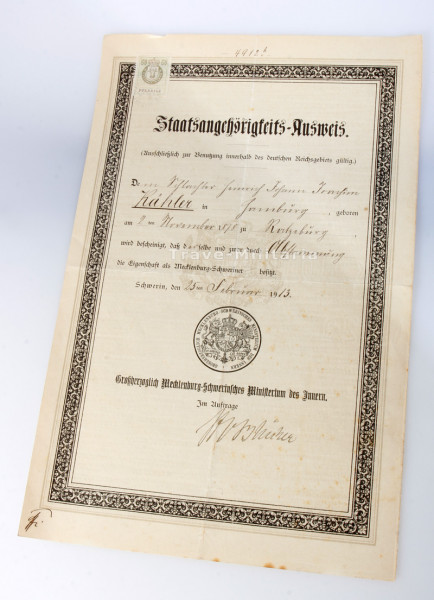 9912
Staatsangehörigkeits-Ausweis.
(Ausschließlich zur Benutzung innerhalb des deutschen Reichsgebiets gültig.)
Dem Schlachter Heinrich Johann Joachim
Kähler in Hamburg, geboren
am 2ten November zu Ratzeburg,
wird bescheinigt, daß derselbe und zwar durch Abstammung
die Eigenschaft als Mecklenburg-Schweriner besitzt.
Trave-Militaria
Schwerin, den 13ten Februar 1913.
Großherzoglich Mecklenburg-Schwerinsches Ministerium des Innern.
Im Auftrage